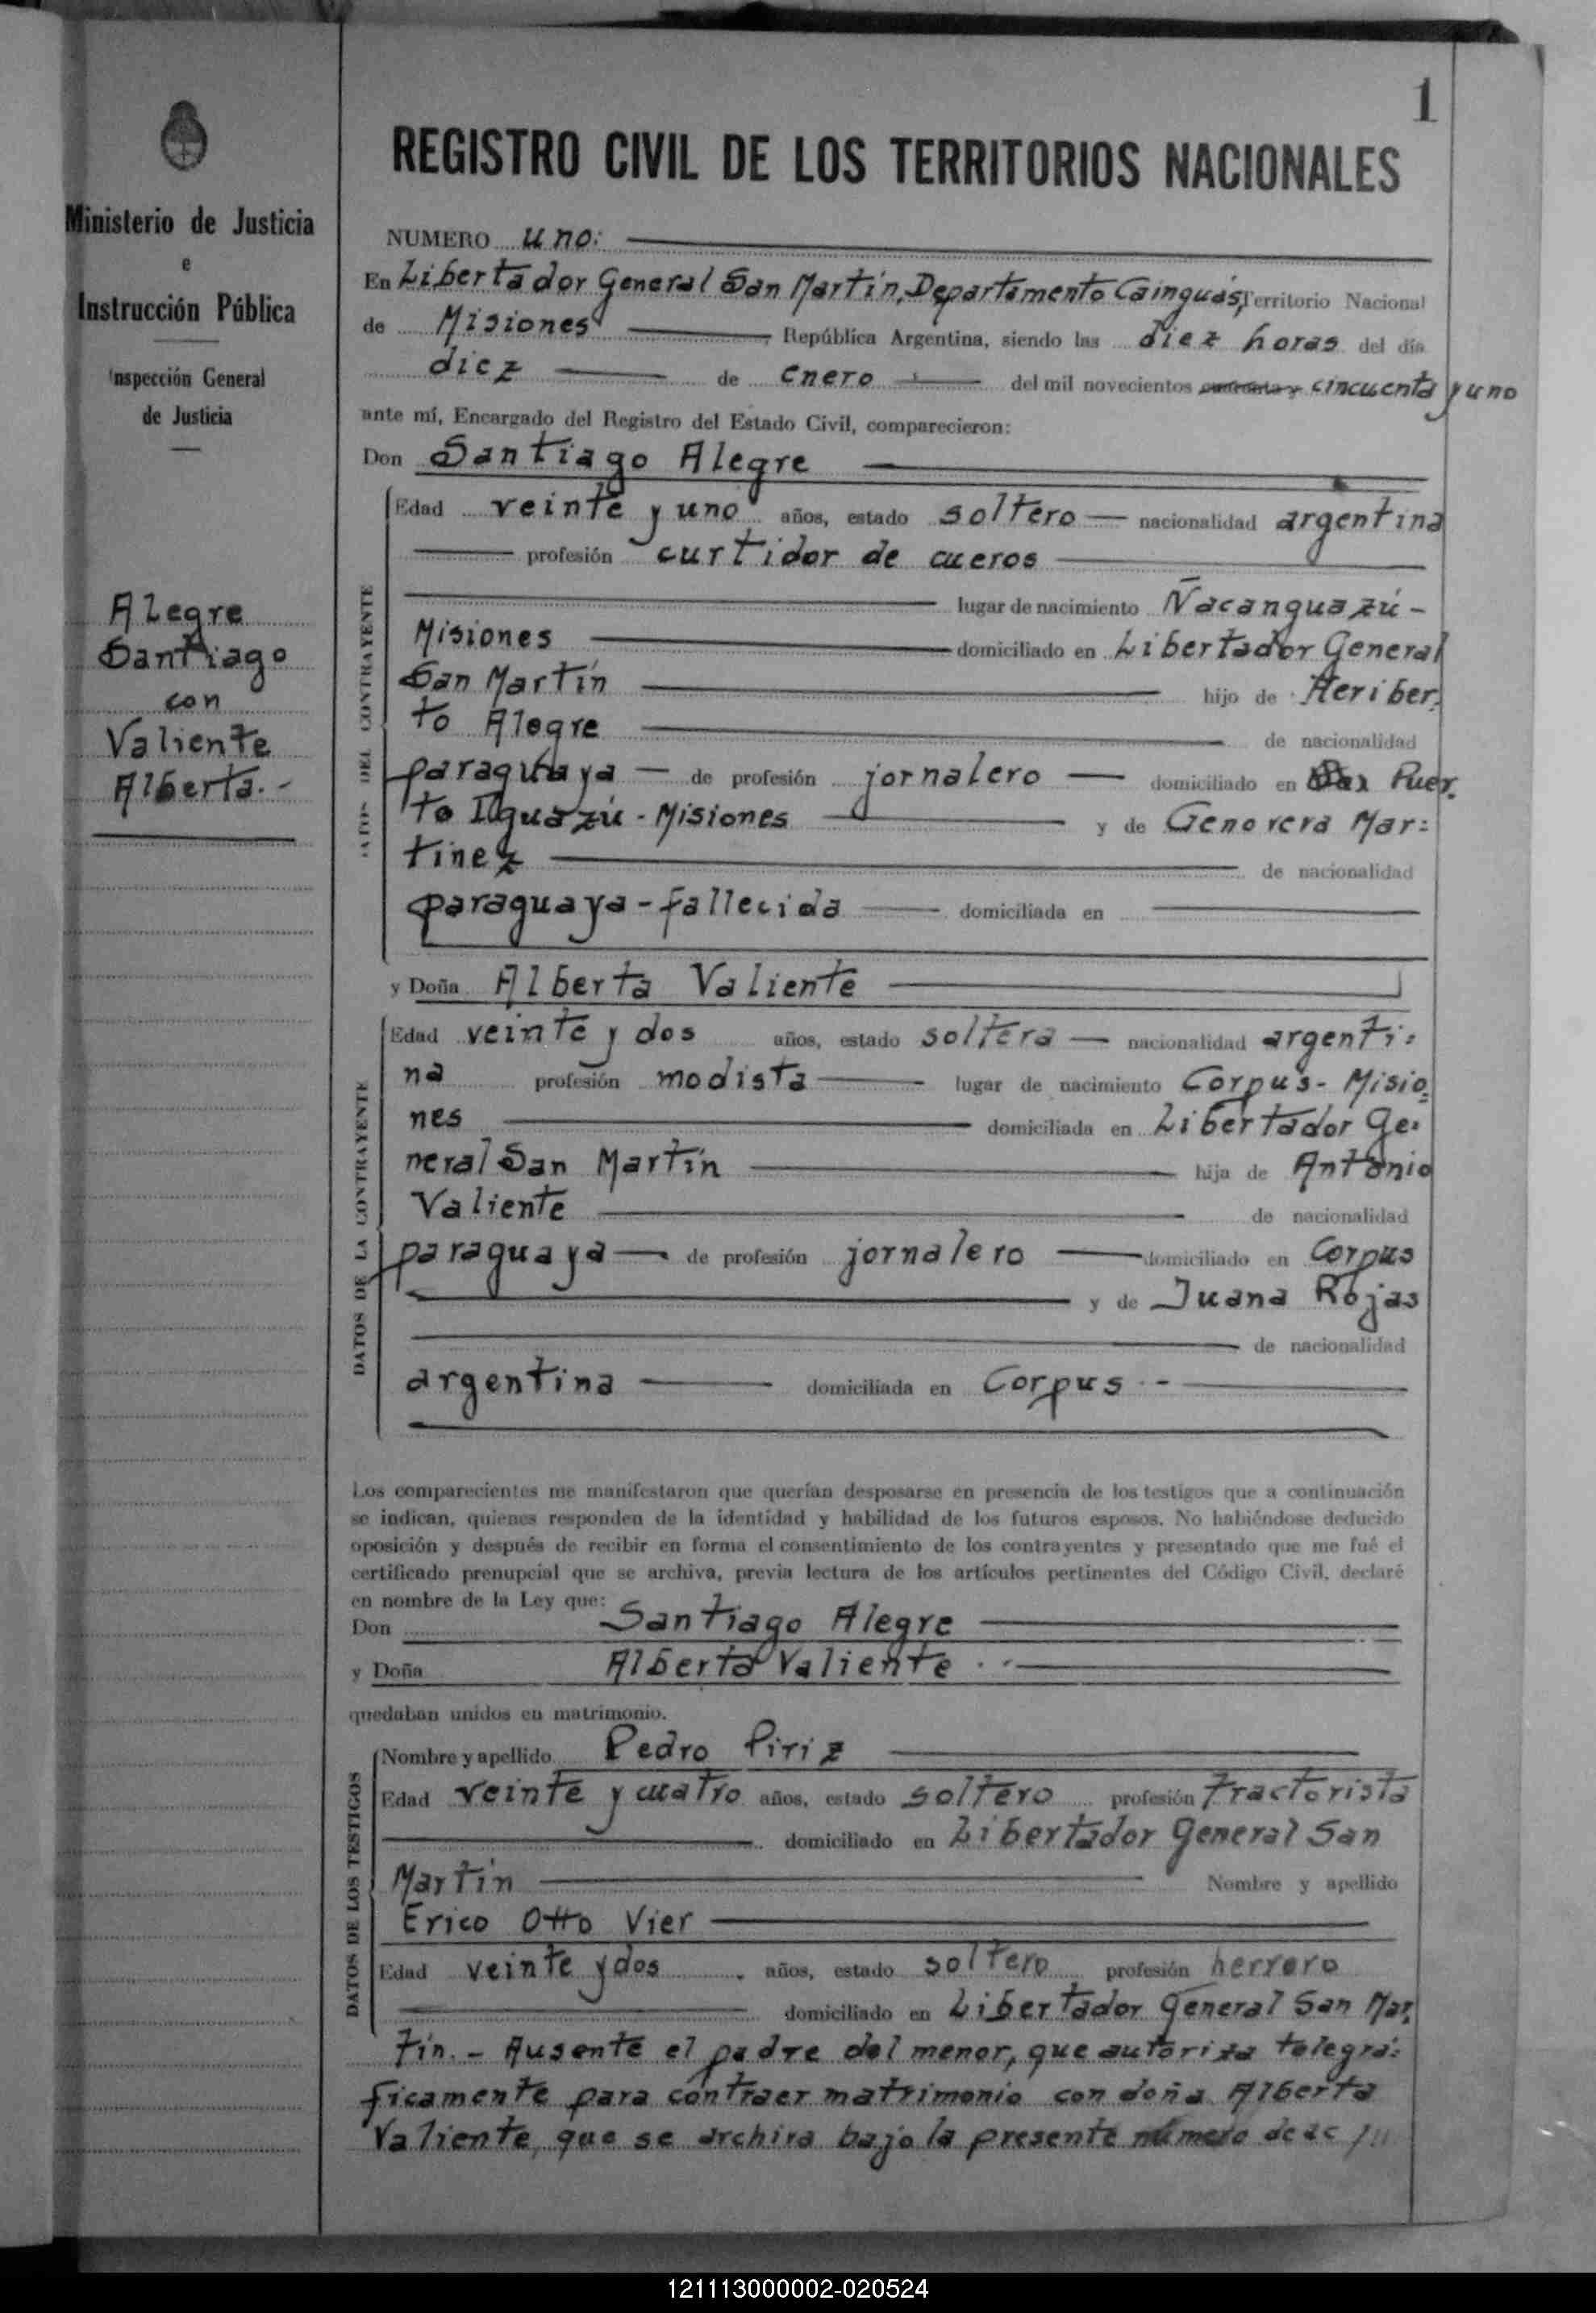 1
REGISTRO CIVIL DE LOS TERRITORIOS NACIONALES
Ministerio de Justicia
e
Instrucción Pública
Inspección General
de Justicia
Alegre
Santiago
con
Valiente
Alberta.-
NUMERO uno:
En Libertador General San Martín, Departamento Cainguás, Territorio Nacional
de Misiones, República Argentina, siendo las diez horas del día
diez de enero del mil novecientos cincuenta y uno
ante mí, Encargado del Registro del Estado Civil, comparecieron:
Don Santiago Alegre
DATOS DEL CONTRAYENTE
Edad veinte y uno años, estado soltero nacionalidad argentina
profesión curtidor de cueros
lugar de nacimiento Ñacanguazú -
Misiones domiciliado en Libertador General
San Martín hijo de Heriber,
to Alegre de nacionalidad
paraguaya de profesión jornalero domiciliado en Puer.
to Iguazú - Misiones y de Genoveva Mar:
tinez de nacionalidad
paraguaya - fallecida domiciliada en
y Doña Alberta Valiente
DATOS DE LA CONTRAYENTE
Edad veinte y dos años, estado soltera nacionalidad argenti:
na profesión modista lugar de nacimiento Corpus - Misio=
nes domiciliada en Libertador Ge:
neral San Martín hija de Antonio
Valiente de nacionalidad
paraguaya de profesión jornalero domiciliado en Corpus
y de Juana Rojas
de nacionalidad
argentina domiciliada en Corpus -
Los comparecientes me manifestaron que querían desposarse en presencia de los testigos que a continuación
se indican, quienes responden de la identidad y habilidad de los futuros esposos. No habiéndose deducido
oposición y después de recibir en forma el consentimiento de los contrayentes y presentado que me fué el
certificado prenupcial que se archiva, previa lectura de los artículos pertinentes del Código Civil, declaré
en nombre de la Ley que:
Don Santiago Alegre
y Doña Alberta Valiente
quedaban unidos en matrimonio.
DATOS DE LOS TESTIGOS
Nombre y apellido Pedro Piriz
Edad veinte y cuatro años, estado soltero profesión tractorista
domiciliado en Libertador General San
Martín Nombre y apellido
Erico Otto Vier
Edad veinte y dos años, estado soltero profesión herrero
domiciliado en Libertador General San Mar,
tín. - Ausente el padre del menor, que autoriza telegrá:
ficamente para contraer matrimonio con doña Alberta
Valiente, que se archiva bajo la presente número de
121113000002-020524